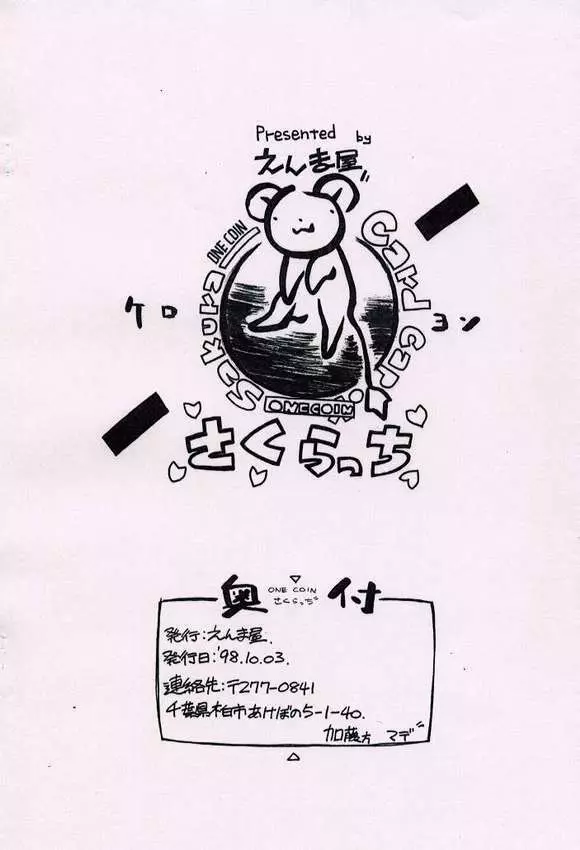 Presented by
えんま屋"
ONE COIN
Card Cap
Sakura
ケロ
ヨン
ONE COIN
さくらっち
奥付
ONE COIN
さくらっち
発行:えんま屋.
発行日:'98.10.03.
連絡先:〒277-0841
千葉県柏市あけぼの5-1-40.
加藤方 マデ"